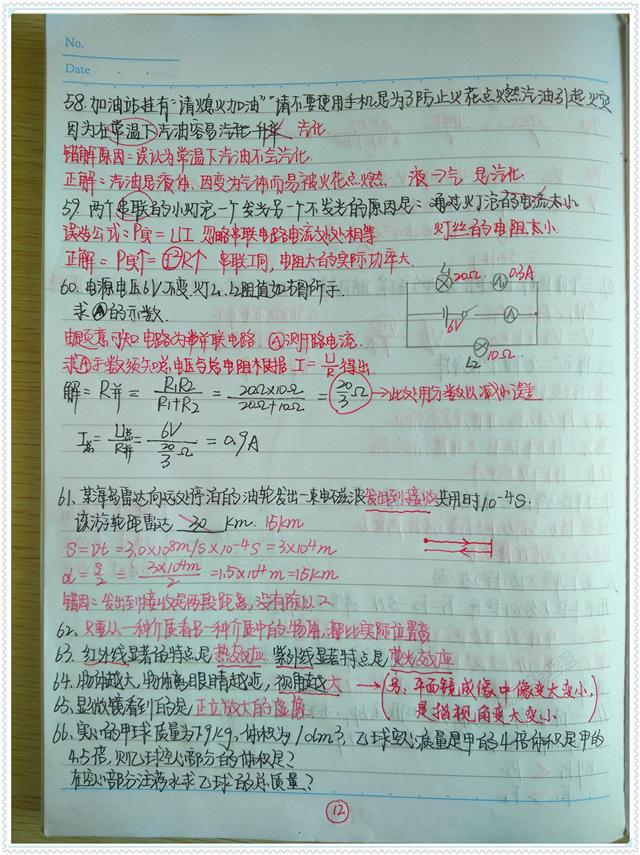 No.
Date
58. 加油站挂有"请熄火加油""请不要使用手机是为了防止火花点燃汽油引起火灾
因为在常温下汽油容易汽化 升华 汽化
错解原因:误认为常温下汽油不会汽化.
正解:汽油是液体,因变为气体而易被火花点燃 液→气 是汽化.
59. 两个串联的小灯泡一个发光另一个不发光的原因是:通过灯泡的电流太小
误为公式:P实=UI 忽略串联电路电流处处相等 灯丝的电阻太小
正解:P实↑=I²R↑ 串联I同,电阻大的实际功率大
60. 电源电压6V不变.灯L1.L2阻值如图所示.
L1 20Ω A1 0.3A
求A的示数.
6V A
由题意可知电路为并联电路 A测干路电流.
L2 10Ω
求A示数须知总电压与总电阻根据 I=U/R得出
解:R并=R1R2/R1+R2=20Ω×10Ω/20Ω+10Ω=20/3Ω→此处用分数以减小误差
I总=U总/R并=6V/20/3Ω=0.9A
61、某海岛雷达向远处停泊的油轮发出一束电磁波发出到接收共用时10⁻⁴S.
该游轮距雷达 30 km. 15km
S=vt=3.0×10⁸m/s×10⁻⁴S=3×10⁴m
d=S/2=3×10⁴m/2=1.5×10⁴m=15km
错因:发出到接收是两段距离,没有除以2.
62、只要从一种介质看另一种介质中的物体,都比实际位置高
63、红外线显著的特点是热效应.紫外线显著特点是荧光效应
64、物体越大,物体离眼睛越近,视角越大→(另、平面镜成像中像变大变小,
65、显微镜看到的是正立放大的虚像 是指视角变大变小.)
66、实心的甲球质量为7.9kg,体积为1dm³,乙球空心质量是甲的4倍体积是甲的
4.5倍,则乙球空心部分的体积是?
在空心部分注满水求乙球的总质量?
12